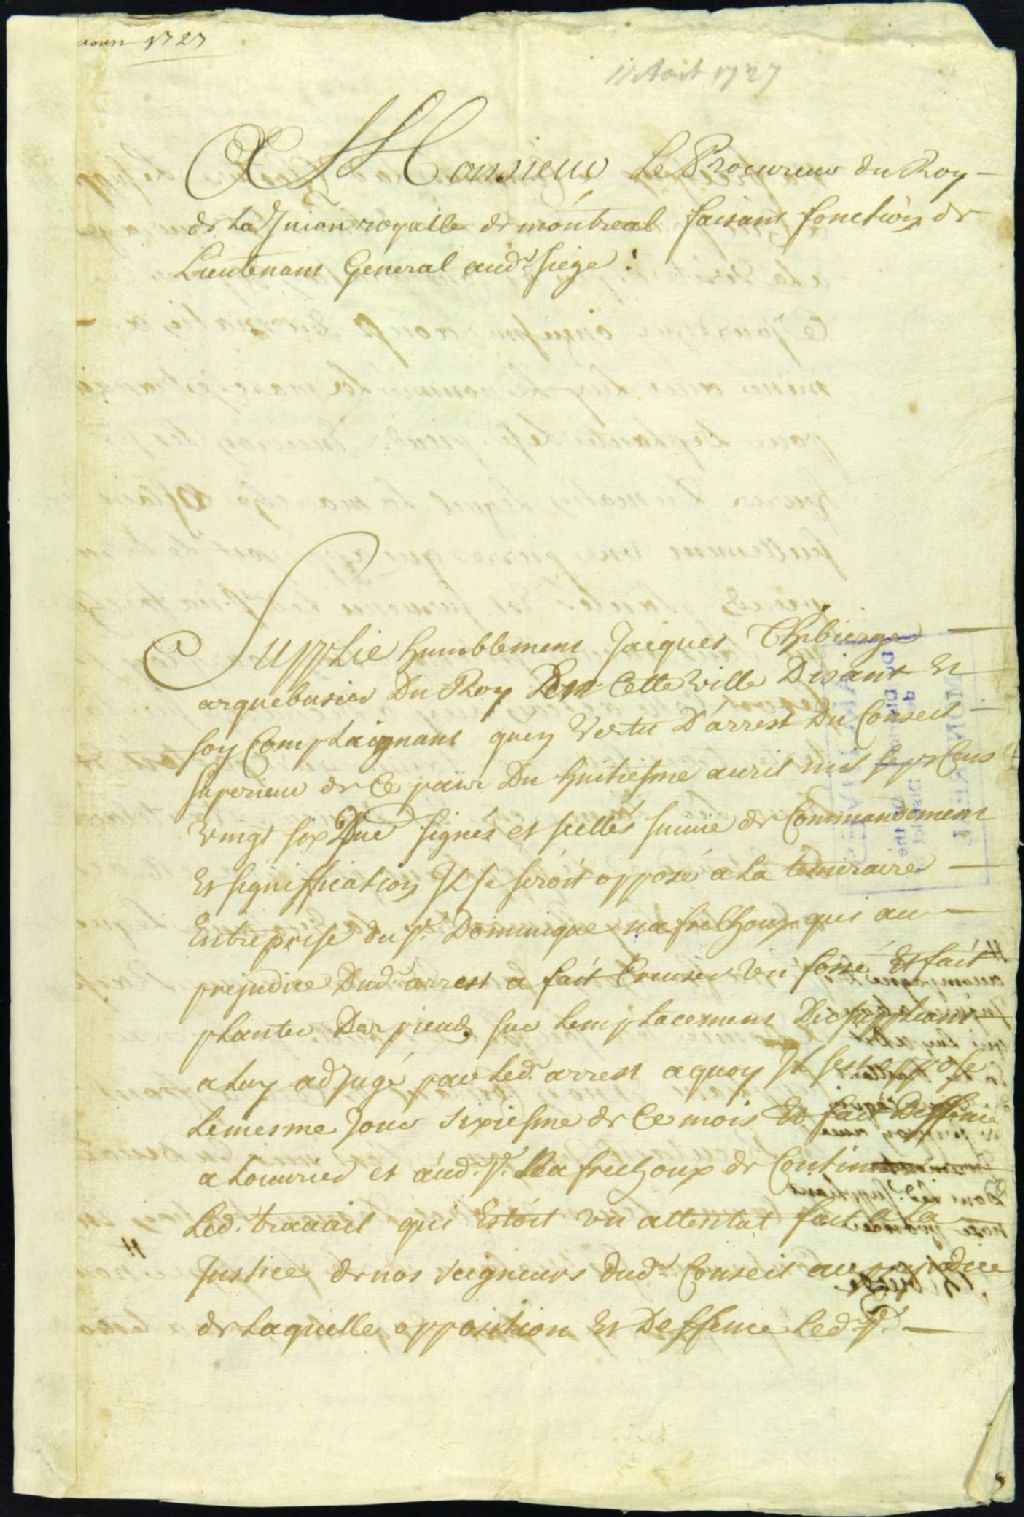 aoust 1727
11 Aoit 1727
A Monsieur Le Procureur du Roy
de La Jurion royalle de montreal faisant fonction de
Lieutenant General aud.t siege :
Supplie humblement Jacques Thibierge
arquebusier Du Roy En Cette Ville Disant Et
soy Complaignant qu'en Vertu D'arrest Du Conseil
superieur de Ce païs Du huitiesme auril mil sept Cens
vingt six Due signés et scellés suiuie de Commandement
Et signiffication Il se seroit opposé a La temeraire
Entreprise du S.r Dominique nafrechoux qui au
prejudice Dud.t arrest a fait Creuser vn fossé Et fait
planter Des pieux sur Lemplacement Du suppliant
a Luy adjugé par Led.t arrest a quoy Il sest opposé
Le mesme Jour sixiesme de Ce mois Et fait Deffence
a Louurier et aud.t S.r Nafrechoux de Continuer
Led.t trauail qui Estoit vn attentat fait a La
Justice de nos seigneurs dud.t Conseil au prejudice
de Laquelle opposition Et Deffence Led.t S.r